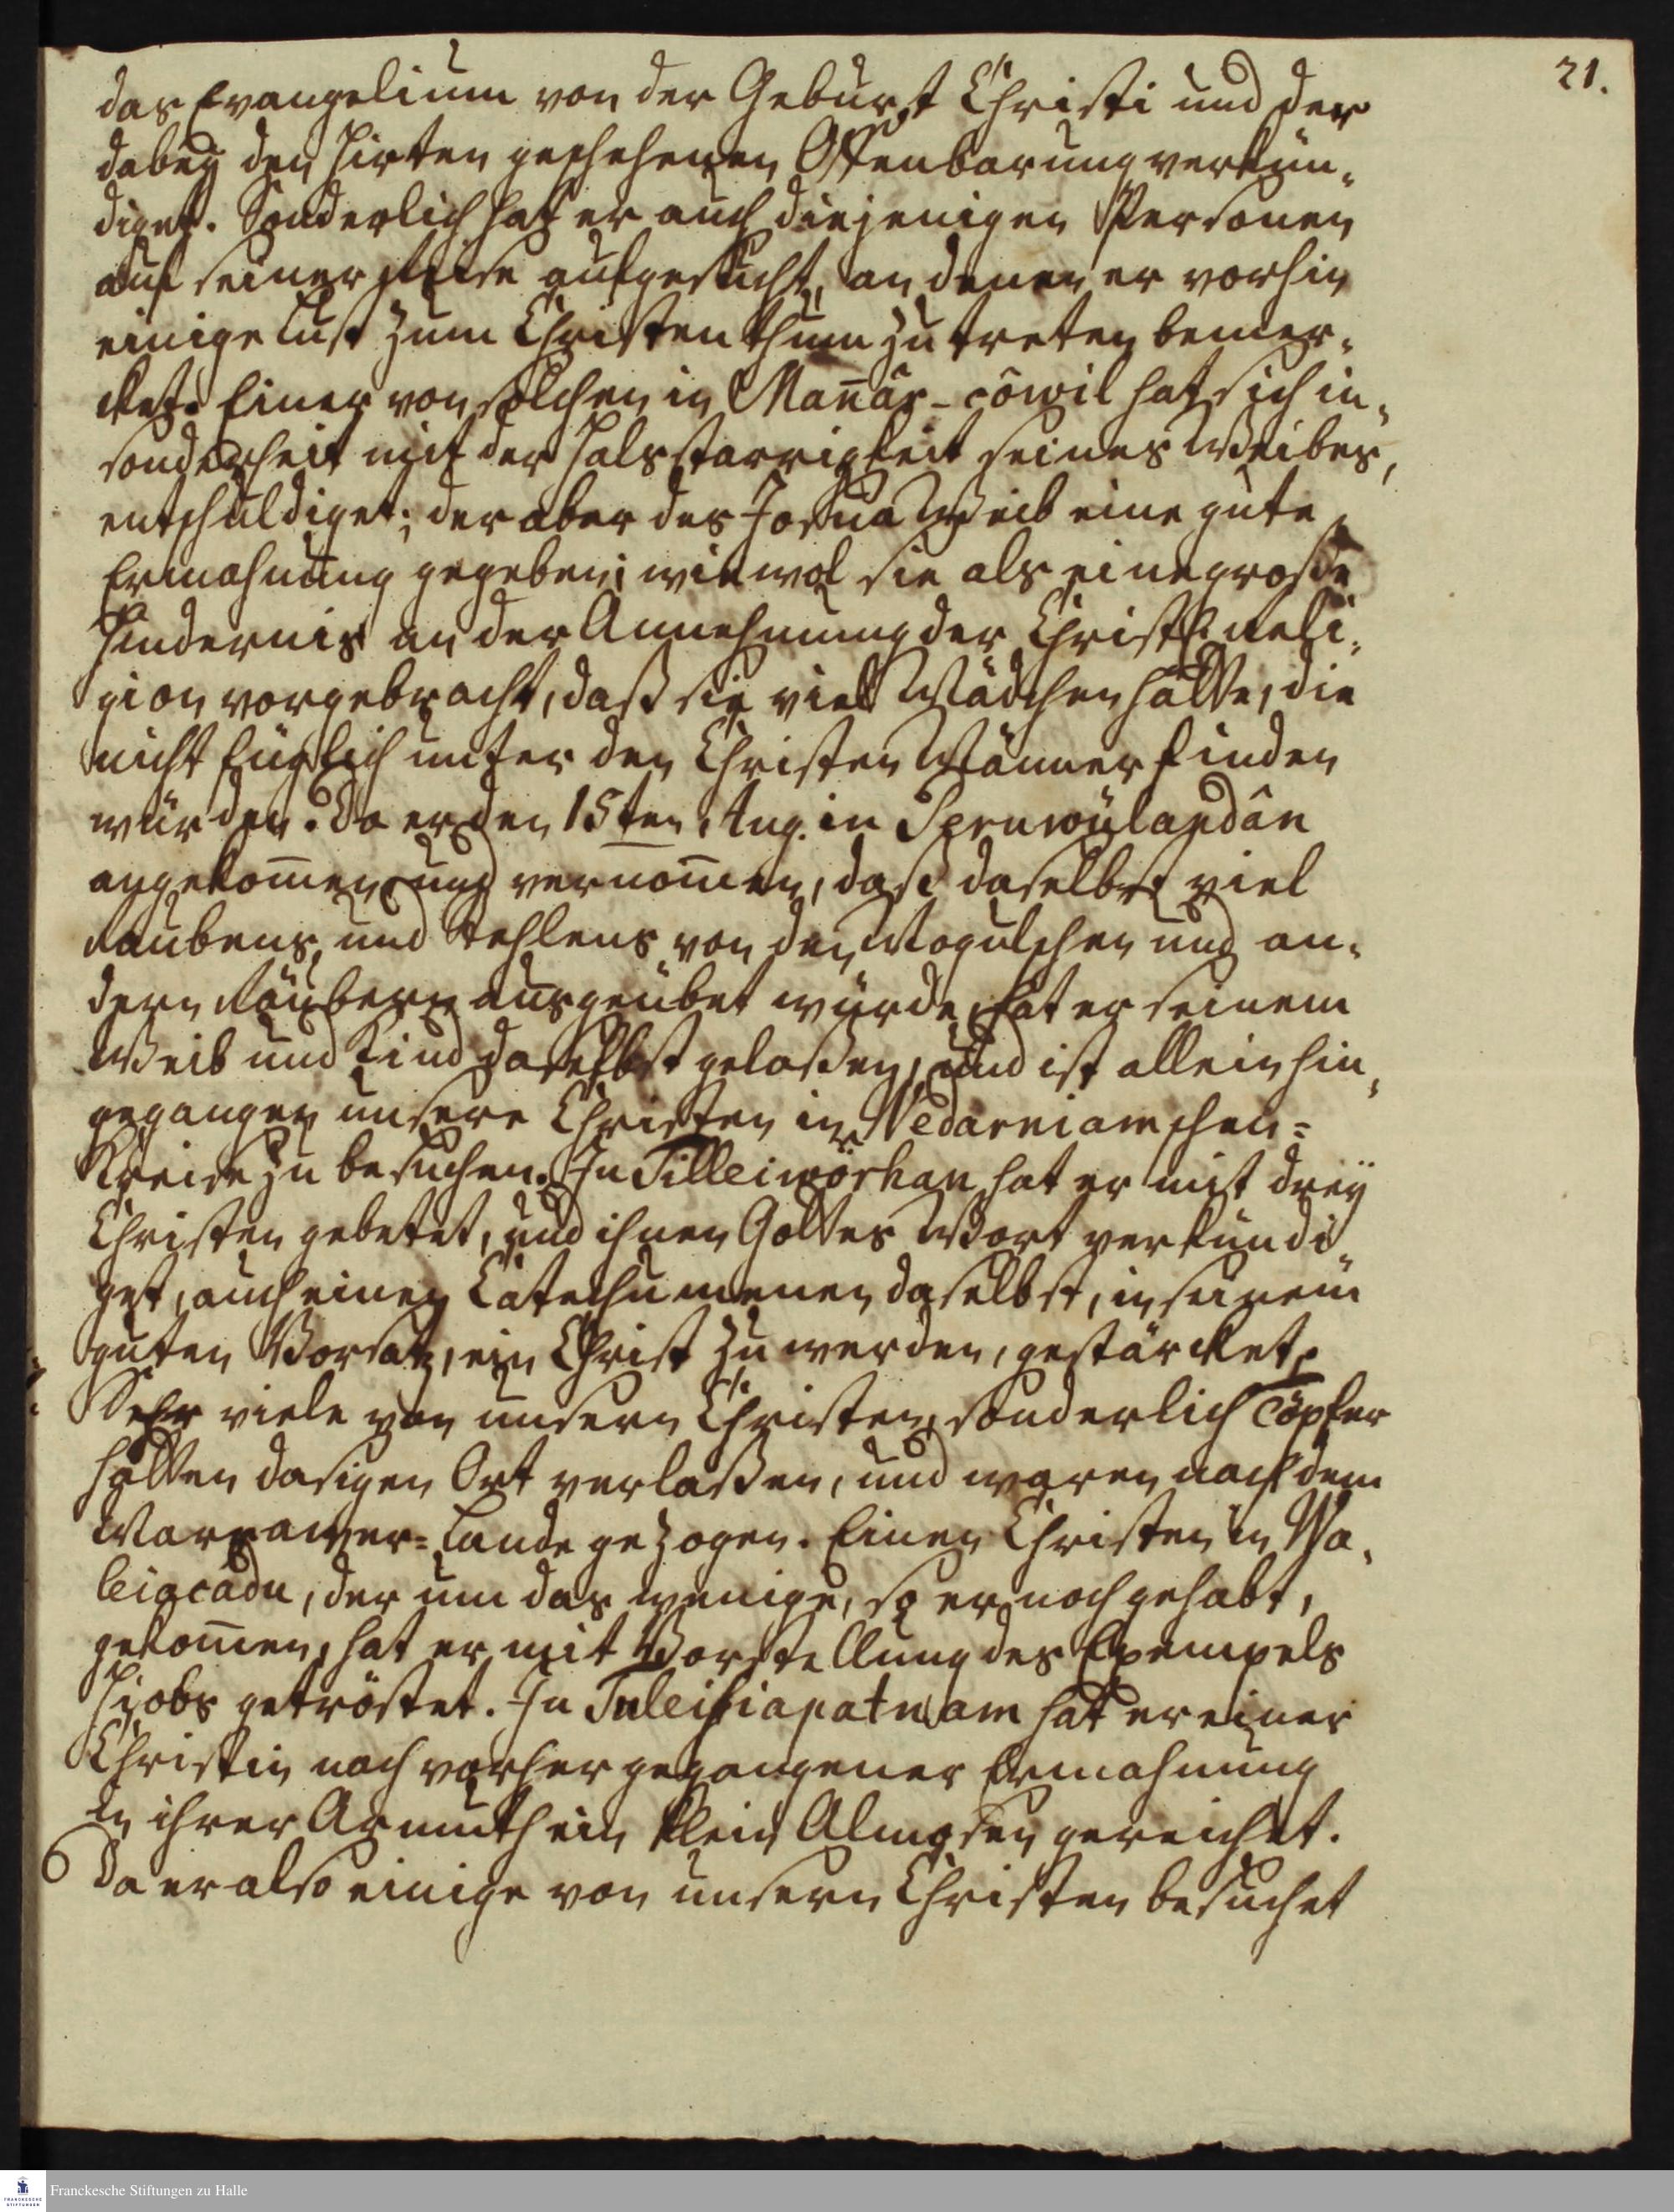 21.
das Evangelium von der Geburt Christi und der
dabeÿ den Hirten geschehenen Offenbarung verkün-
diget. Sonderlich hat er auch diejenigen Personen
auf seiner Reise aufgesucht, an denen er vorhin
einige Lust zum Christenthum zu treten bemer-
cket. Einer von solchen in Man̄âr-côwil hat sich in-
sonderheit mit der Halsstarrigkeit seines Weibes,
entschuldiget; der aber des Josua Weib eine gute
Ermahnung gegeben; wiewol sie als eine große
Hindernis an der Annehmung der Christl. Reli-
gion vorgebracht, daß sie viel Mädchen hätte, die
nicht füglich unter den Christen Männer finden
würden. Da er den 15ten Aug. in Peruwülandân
angekom̄en und vernom̄en, daß daselbst viel
Raubens und Stehlens von den Mogulschen und an-
dern Räubern ausgeübet würde, hat er seinem
Weib und Kind daselbst gelaßen, und ist allein hin-
gegangen unsere Christen im Wedarniamschen=
Kreise zu besuchen. In Tilleiwörhan hat er mit dreÿ
Christen gebetet, und ihnen Gottes Wort verkündi-
get, auch einen Catechumenen daselbst, in seinem
guten Vorsatz, ein Christ zu werden, gestärcket.
Sehr viele von unsern Christen, sonderlich Töpfer
hätten dasigen Ort verlaßen, und waren nach dem
Marrawer=Lande gezogen. Einen Christen in Wa-
leiacâdu, der um das wenige, so er noch gehabt,
gekom̄en, hat er mit Vorstellung des Exempels
Hiobs getröstet. In Tuleisiapatnam hat er einer
Christin nach vorhergegangener Ermahnung
in ihrer Armuth ein klein Almosen gereichet.
Da er also einige von unsern Christen besuchet
Franckesche Stiftungen zu Halle